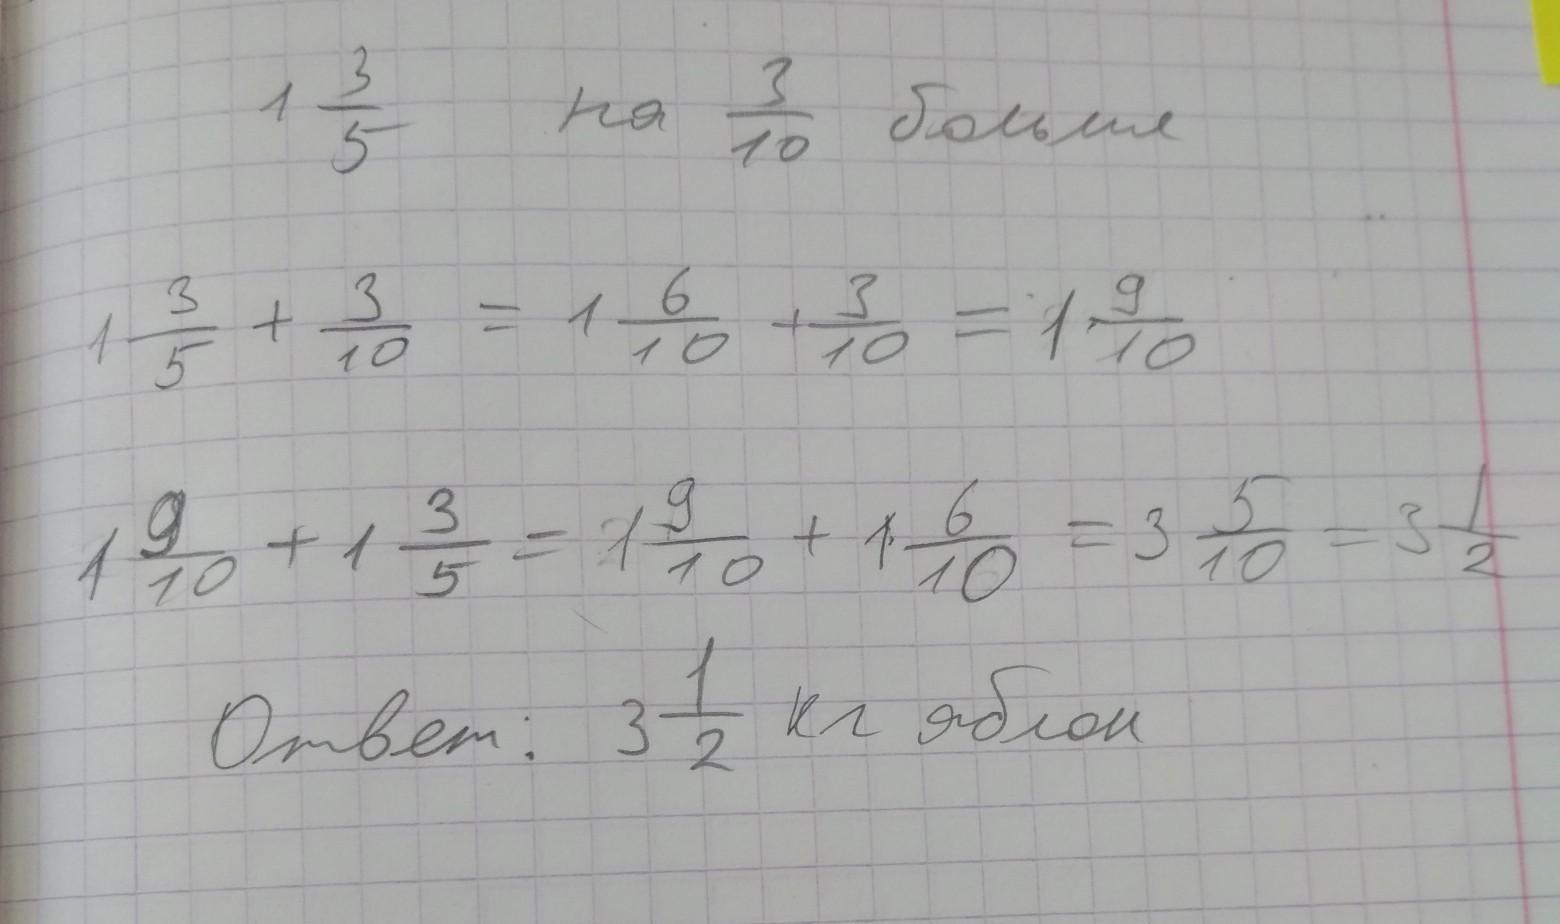 1 3/5 на 3/10 больше
1 3/5 + 3/10 = 1 6/10 + 3/10 = 1 9/10
1 9/10 + 1 3/5 = 1 9/10 + 1 6/10 = 3 5/10 = 3 1/2
Ответ: 3 1/2 кг яблок